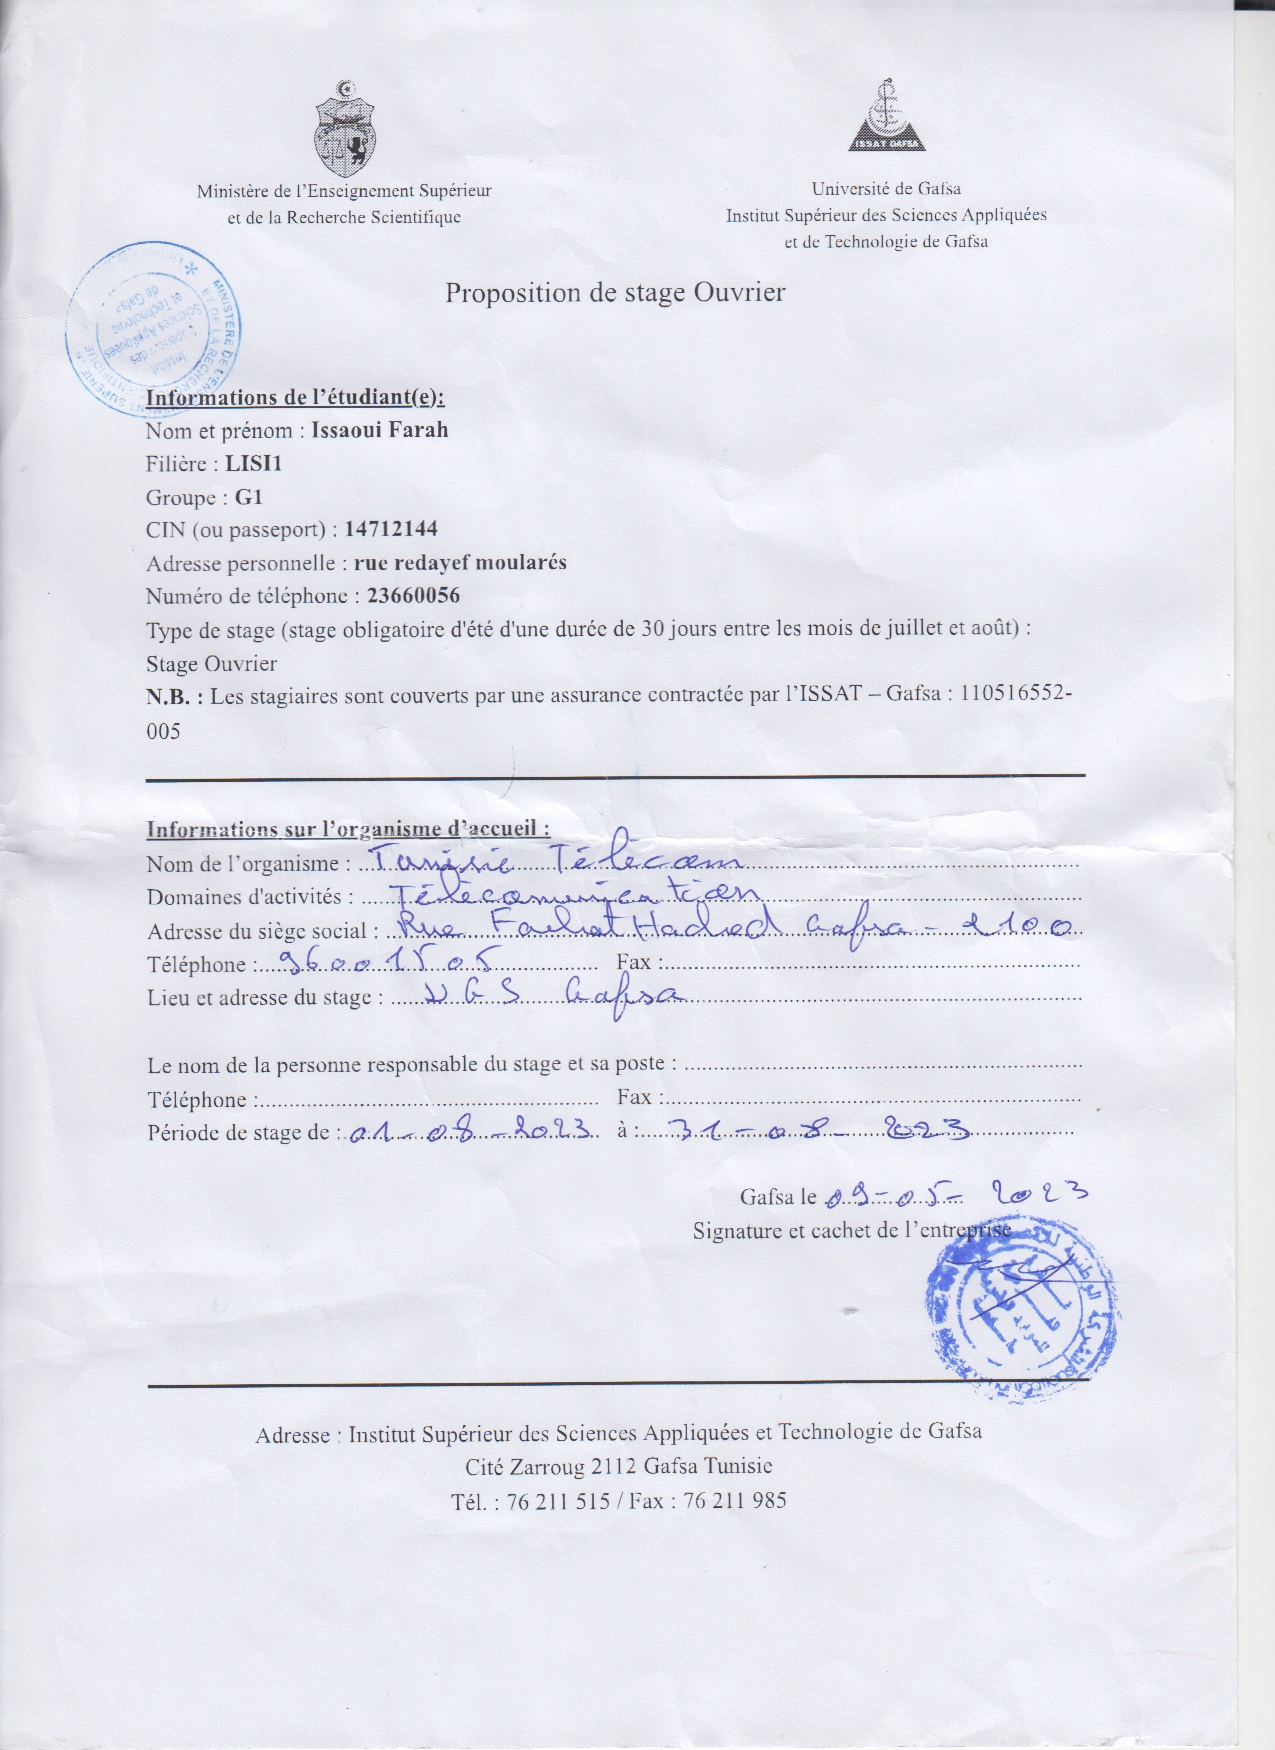 ISSAT GAFSA
Ministère de l'Enseignement Supérieur
et de la Recherche Scientifique
Université de Gafsa
Institut Supérieur des Sciences Appliquées
et de Technologie de Gafsa
MINISTERE DE L'ENSEIGNEMENT SUPERIEUR
ET DE LA RECHERCHE SCIENTIFIQUE
Institut
Supérieur des
Sciences Appliquées
et Technologie
de Gafsa
Proposition de stage Ouvrier
Informations de l'étudiant(e):
Nom et prénom : Issaoui Farah
Filière : LISI1
Groupe : G1
CIN (ou passeport) : 14712144
Adresse personnelle : rue redayef moularés
Numéro de téléphone : 23660056
Type de stage (stage obligatoire d'été d'une durée de 30 jours entre les mois de juillet et août) :
Stage Ouvrier
N.B. : Les stagiaires sont couverts par une assurance contractée par l'ISSAT – Gafsa : 110516552-
005
Informations sur l'organisme d'accueil :
Nom de l'organisme : Tunisie Télécom
Domaines d'activités : Télécomunication
Adresse du siège social : Rue Farhat Hached Gafsa - 2100
Téléphone : 96001505 Fax :
Lieu et adresse du stage : Gafsa
Le nom de la personne responsable du stage et sa poste :
Téléphone : Fax :
Période de stage de : 01-08-2023 à : 31-08-2023
Gafsa le 09-05-2023
Signature et cachet de l'entreprise
Adresse : Institut Supérieur des Sciences Appliquées et Technologie de Gafsa
Cité Zarroug 2112 Gafsa Tunisie
Tél. : 76 211 515 / Fax : 76 211 985